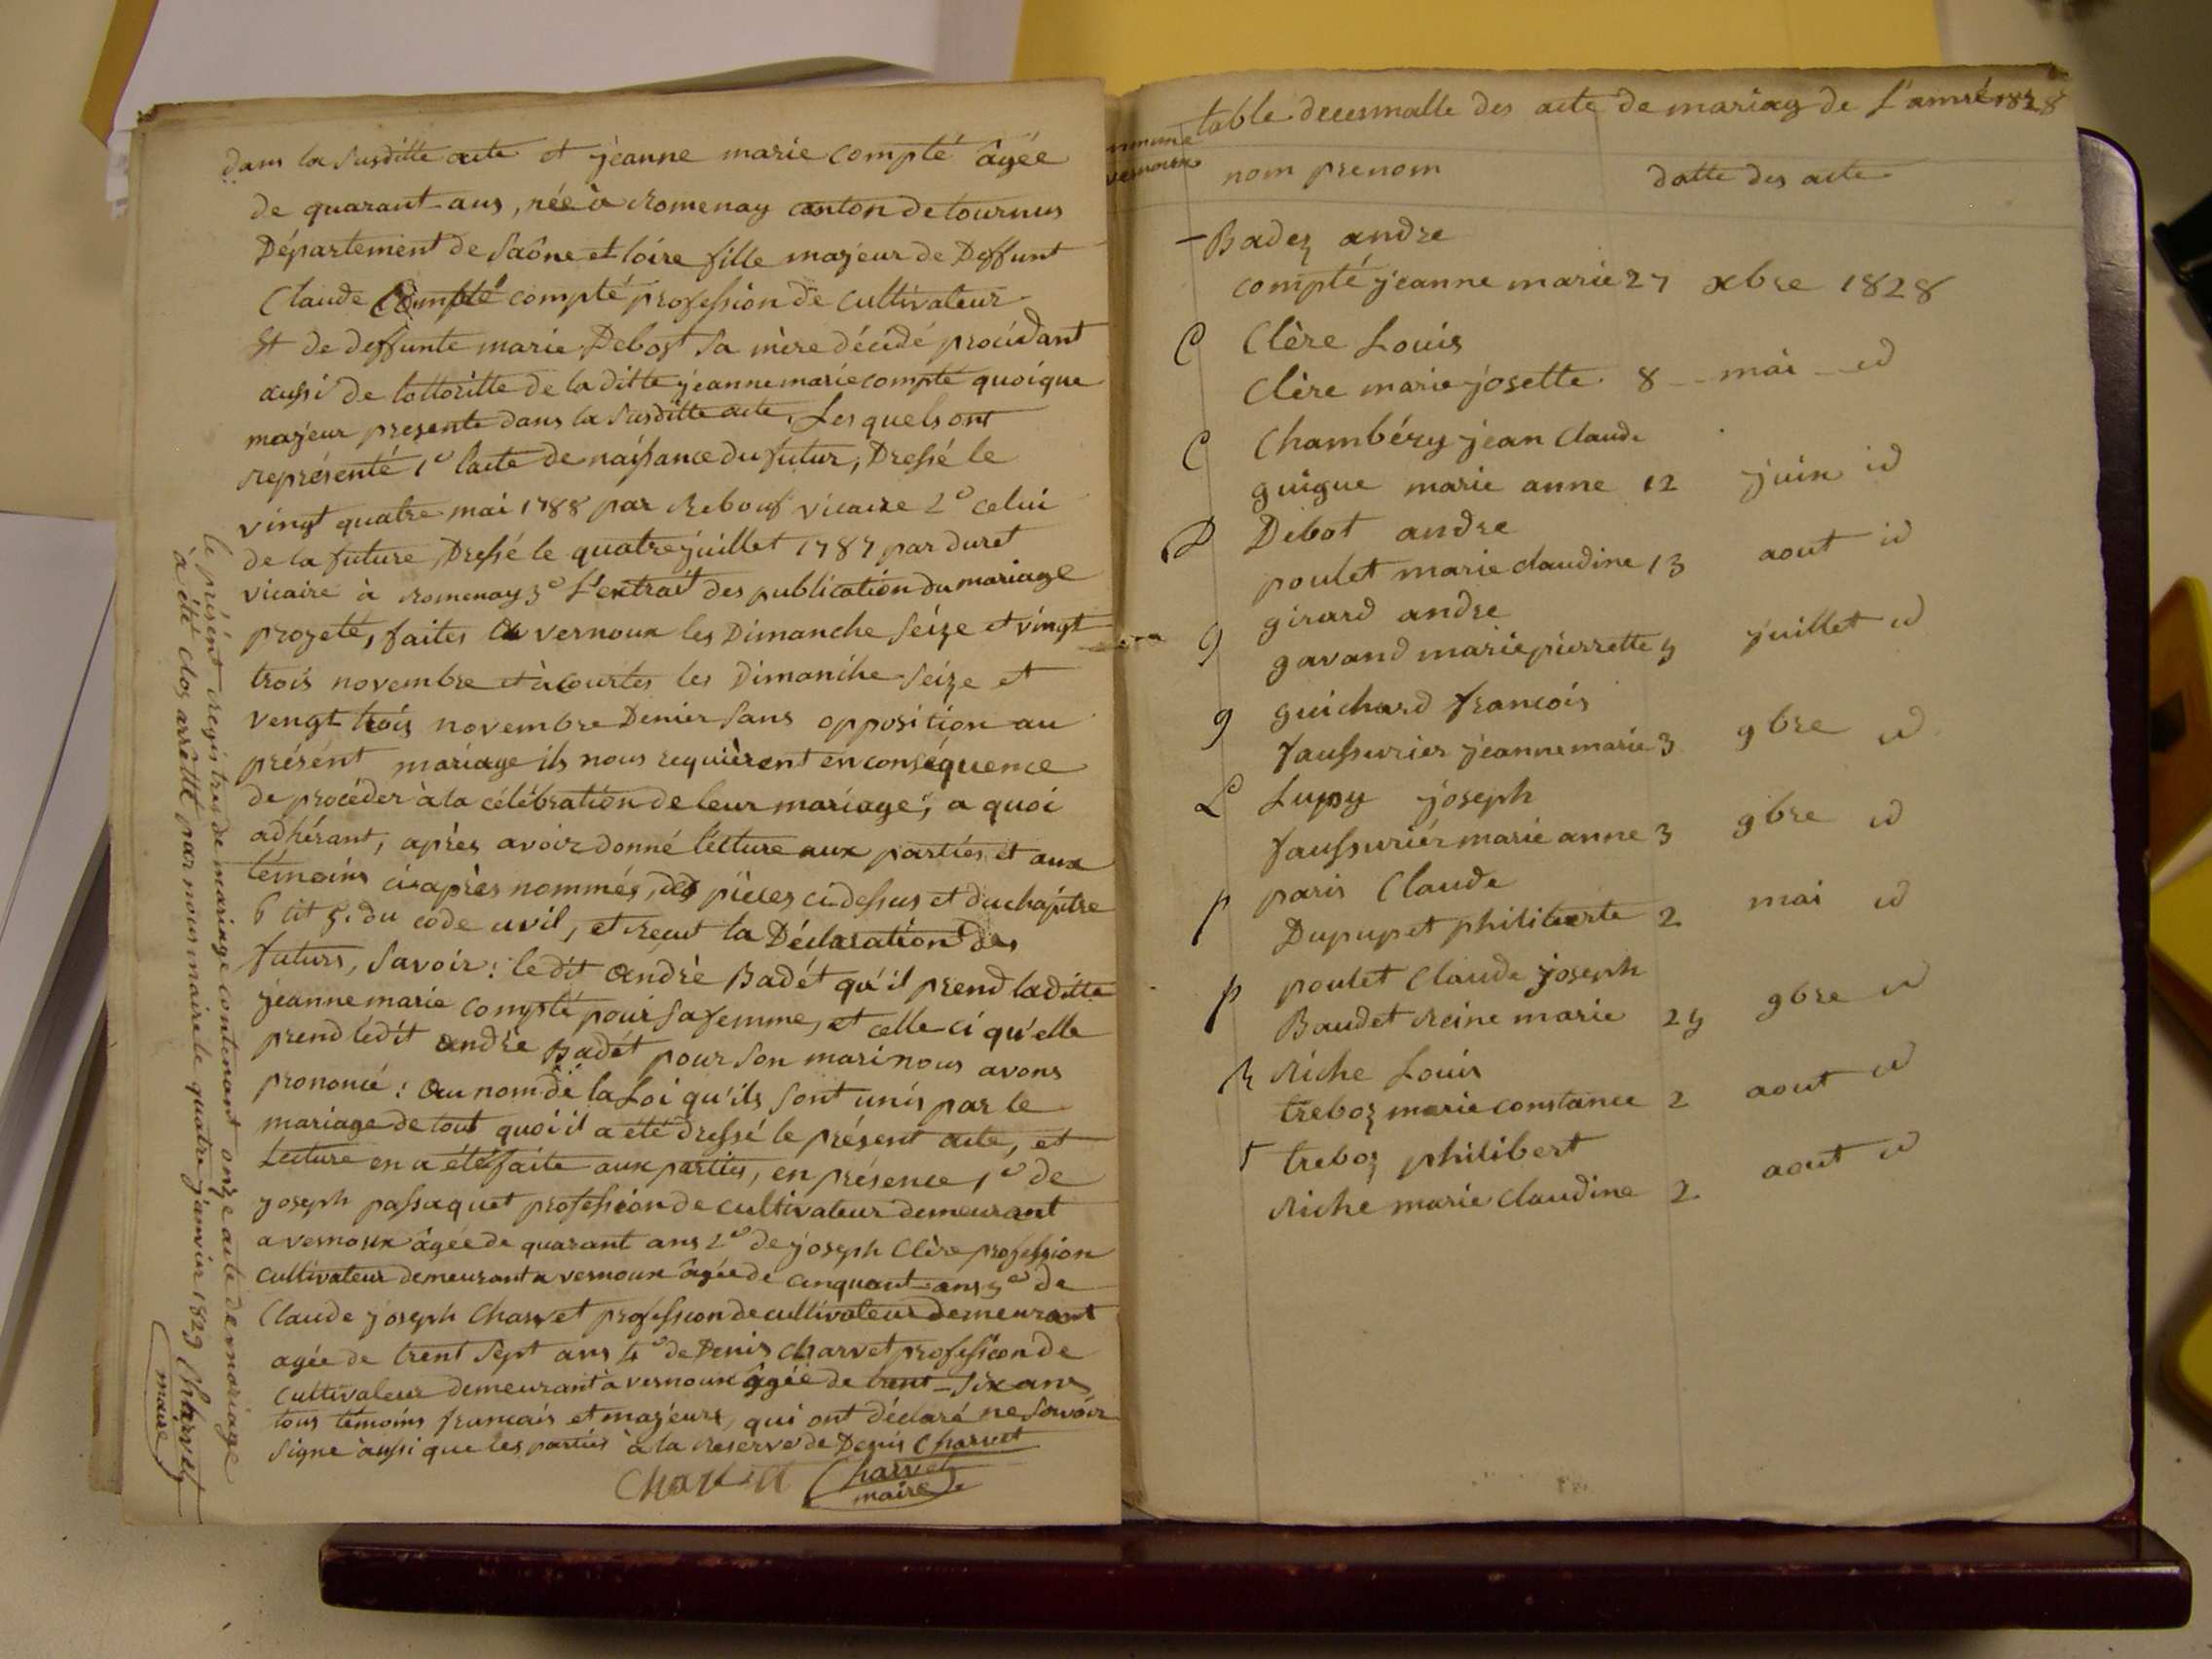 dans la susditte acte et jeanne marie compté âgée
de quarant ans, née à romenay canton de tournus
Département de Saône et loire fille majeur de Deffunt
Claude Compté compté profession de cultivateur
et de deffunte marie Debost sa mère décédé procédant
aussi de lottoritte de la ditte jeanne marie compté quoique
majeur presente dans la susditte acte. Lesquels ont
représenté 1º lacte de naissance du futur, Dressé le
vingt quatre mai 1788 par Rebouf vicaire 2º celui
de la future, Dressé le quatre juillet 1787 par duret
vicaire à romenay 3º L'extrait des publication du mariage
projeté, faites a vernoux les Dimanche seize et vingt
trois novembre et à courtes les Dimanche seize et
vengt trois novembre Denier sans opposition au
présent mariage ils nous requièrent en conséquence
de procéder à la célébration de leur mariage, a quoi
adhérant, après avoir donné lecture aux parties et aux
témoins ci après nommés, des pièces ci dessus et du chapitre
6 tit 5. du code civil, et reçut la Déclaration des
futurs, savoir: ledit andrè Badét qu'il prend laditte
jeanne marie compté pour sa femme, et celle ci qu'elle
prend ledit andré Badét pour son mari nous avons
prononcé: au nom de la Loi qu'ils sont unis par le
mariage de tout quoi il a été dressé le présent acte, et
Lecture en a été faite aux parties, en présence 1º de
joseph passaquet profession de cultivateur demeurant
a vernoux âgée de quarant ans 2º de joseph Clère profession
cultivateur demeurant a vernoux âgée de cinquant ans 3º de
Claude joseph Charvet profession de cultivateur demeurant
agée de trent sept ans 4º de Denis charvet profession de
cultivateur demeurant à vernoux âgée de trent-six ans
tous témoins francais et majeurs, qui ont déclaré ne savoir
signe aussi que les parties à la reserve de Denis Charvet
Charvet Charvet
maire
le présent registre de mariage contenant onze acte de mariage
à été clos arretté par nous maire le quatre janvier 1829 Charvet
maire
table decennalle des acte de mariag de L'année 1828
nom prenom datte des acte
Badez andre
compté jeanne marie 27 xbre 1828
C Clère Louis
Clère marie josette 8 mai id
C Chambéry jean Claude
guigue marie anne 12 juin id
D Debot andre
poulet marie claudine 13 aout id
g girard andre
gavand marie pierrette 9 juillet id
g guichard francois
faussurier jeanne marie 3 9bre id
L Lupy joseph
faussuriér marie anne 3 9bre id
p paris Claude
Dupupet philiberte 2 mai id
p poulet Claude joseph
Baudet reine marie 29 9bre id
R riche Louis
treboz marie constance 2 aout id
T treboz philibert
riche marie claudine 2 aout id